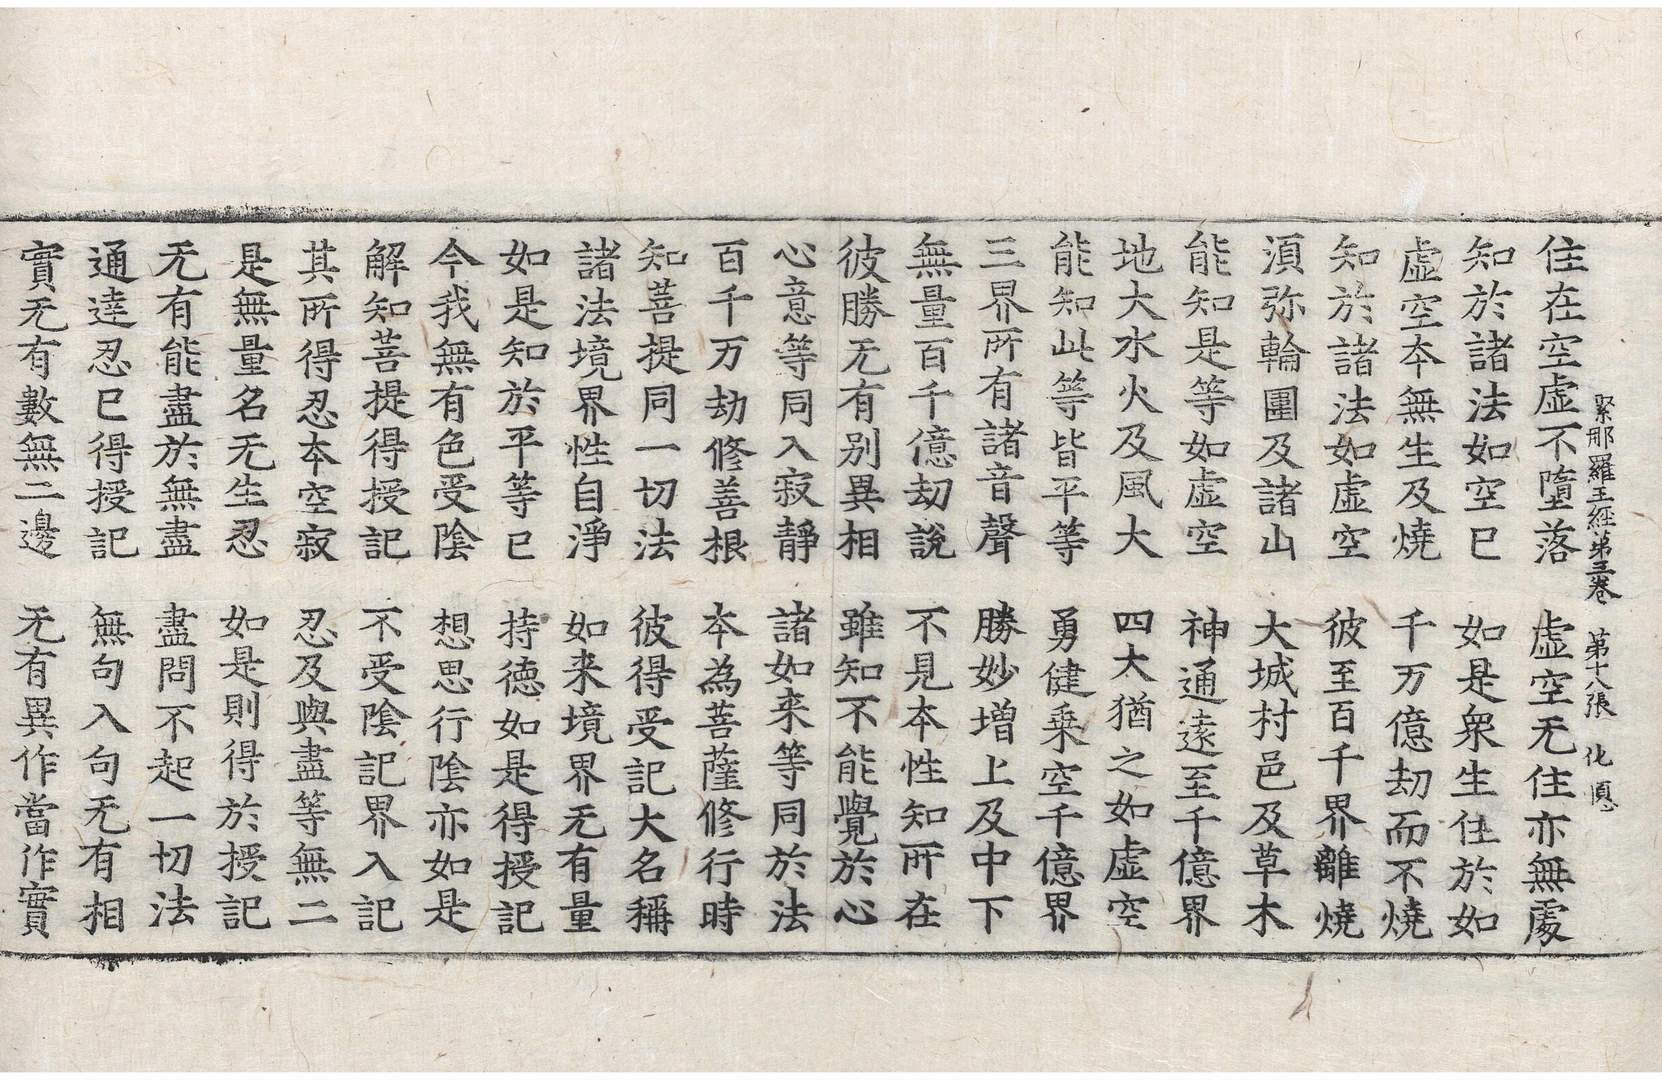 緊那羅王經第三卷　第十八張　化
住在空虛不墮落　虛空无住亦無處
知於諸法如空已　如是衆生住於如
虛空本無生及燒　千万億劫而不燒
知於諸法如虛空　彼至百千界離燒
須弥輪圍及諸山　大城村邑及草木
能知是等如虛空　神通遠至千億界
地大水火及風大　四大猶之如虛空
能知此等皆平等　勇健乗空千億界
三界所有諸音聲　勝妙增上及中下
無量百千億劫說　不見本性知所在
彼勝无有别異相　雖知不能覺於心
心意等同入寂靜　諸如来等同於法
百千万劫修善根　本為菩薩修行時
知菩提同一切法　彼得受記大名稱
諸法境界性自淨　如来境界无有量
如是知於平等已　持德如是得授記
今我無有色受陰　想思行陰亦如是
解知菩提得授記　不受陰記界入記
其所得忍本空寂　忍及與盡等無二
是無量名无生忍　如是則得於授記
无有能盡於無盡　盡問不起一切法
通達忍已得授記　無句入句无有相
實无有數無二邊　无有異作當作實